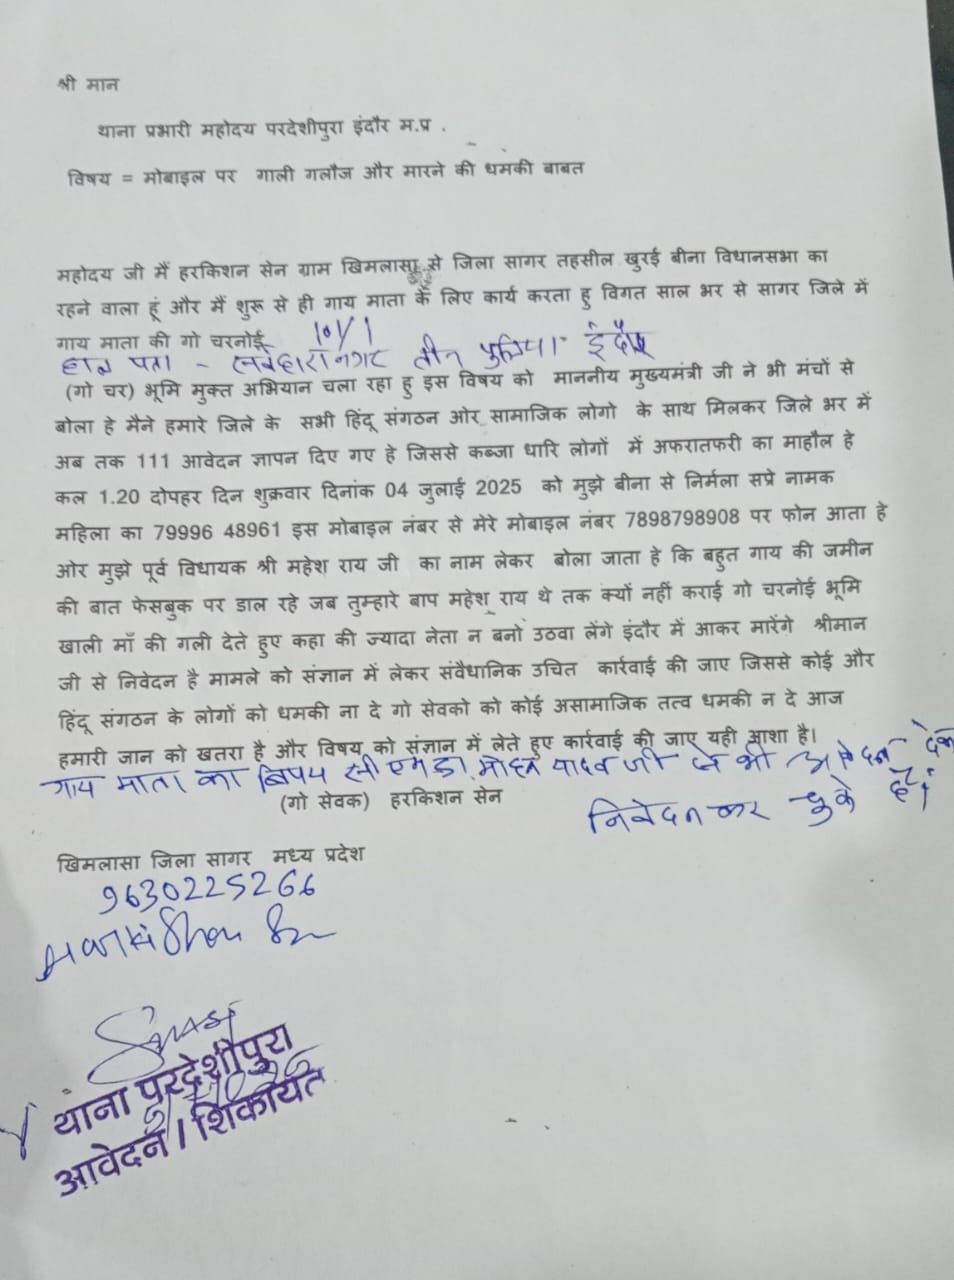 श्री मान
थाना प्रभारी महोदय परदेशीपुरा इंदौर म.प्र .
विषय = मोबाइल पर गाली गलौज और मारने की धमकी बाबत
महोदय जी मैं हरकिशन सेन ग्राम खिमलासा से जिला सागर तहसील खुरई बीना विधानसभा का
रहने वाला हूं और मैं शुरू से ही गाय माता के लिए कार्य करता हु विगत साल भर से सागर जिले में
गाय माता की गो चरनोई
101/1
हाल पता - सर्वहारा नगर तीन पुलिया इंदौर
(गो चर) भूमि मुक्त अभियान चला रहा हु इस विषय को माननीय मुख्यमंत्री जी ने भी मंचों से
बोला हे मैने हमारे जिले के सभी हिंदू संगठन ओर सामाजिक लोगो के साथ मिलकर जिले भर में
अब तक 111 आवेदन ज्ञापन दिए गए हे जिससे कब्जा धारि लोगों में अफरातफरी का माहौल हे
कल 1.20 दोपहर दिन शुक्रवार दिनांक 04 जुलाई 2025 को मुझे बीना से निर्मला सप्रे नामक
महिला का 79996 48961 इस मोबाइल नंबर से मेरे मोबाइल नंबर 7898798908 पर फोन आता हे
ओर मुझे पूर्व विधायक श्री महेश राय जी का नाम लेकर बोला जाता हे कि बहुत गाय की जमीन
की बात फेसबुक पर डाल रहे जब तुम्हारे बाप महेश राय थे तक क्यों नहीं कराई गो चरनोई भूमि
खाली माँ की गली देते हुए कहा की ज्यादा नेता न बनो उठवा लेंगे इंदौर में आकर मारेंगे श्रीमान
जी से निवेदन है मामले को संज्ञान में लेकर संवैधानिक उचित कार्रवाई की जाए जिससे कोई और
हिंदू संगठन के लोगों को धमकी ना दे गो सेवको को कोई असामाजिक तत्व धमकी न दे आज
हमारी जान को खतरा है और विषय को संज्ञान में लेते हुए कार्रवाई की जाए यही आशा है।
गाय माता का विषय सी एम डा. मोहन यादव जी से भी आवेदन देकर
निवेदन कर चुके हैं।
(गो सेवक) हरकिशन सेन
खिमलासा जिला सागर मध्य प्रदेश
9630225266
थाना परदेशीपुरा
आवेदन / शिकायत